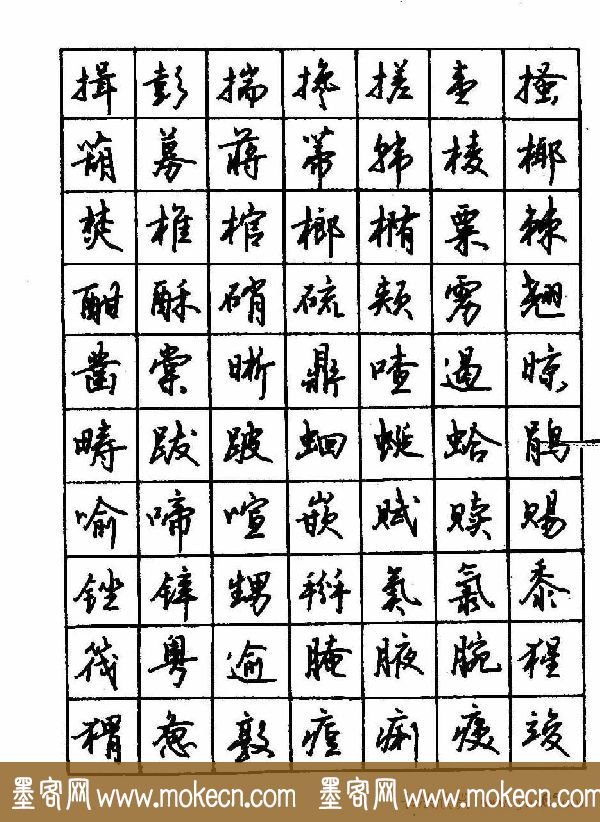 揖彭揣搀搓壹搔
葫募蒋蒂韩棱椰
焚椎棺榔椭粟棘
酣酥硝硫颊雳翘
凿棠晰鼎喳遏晾
畴跋跛蛔蜒蛤鹃
喻啼喧嵌赋赎赐
锉锌甥掰氮氯黍
筏粤逾腌腋腕猩
猬惫敦痘痢痪竣
墨客网 www.mokecn.com 墨客网 www.mokecn.com